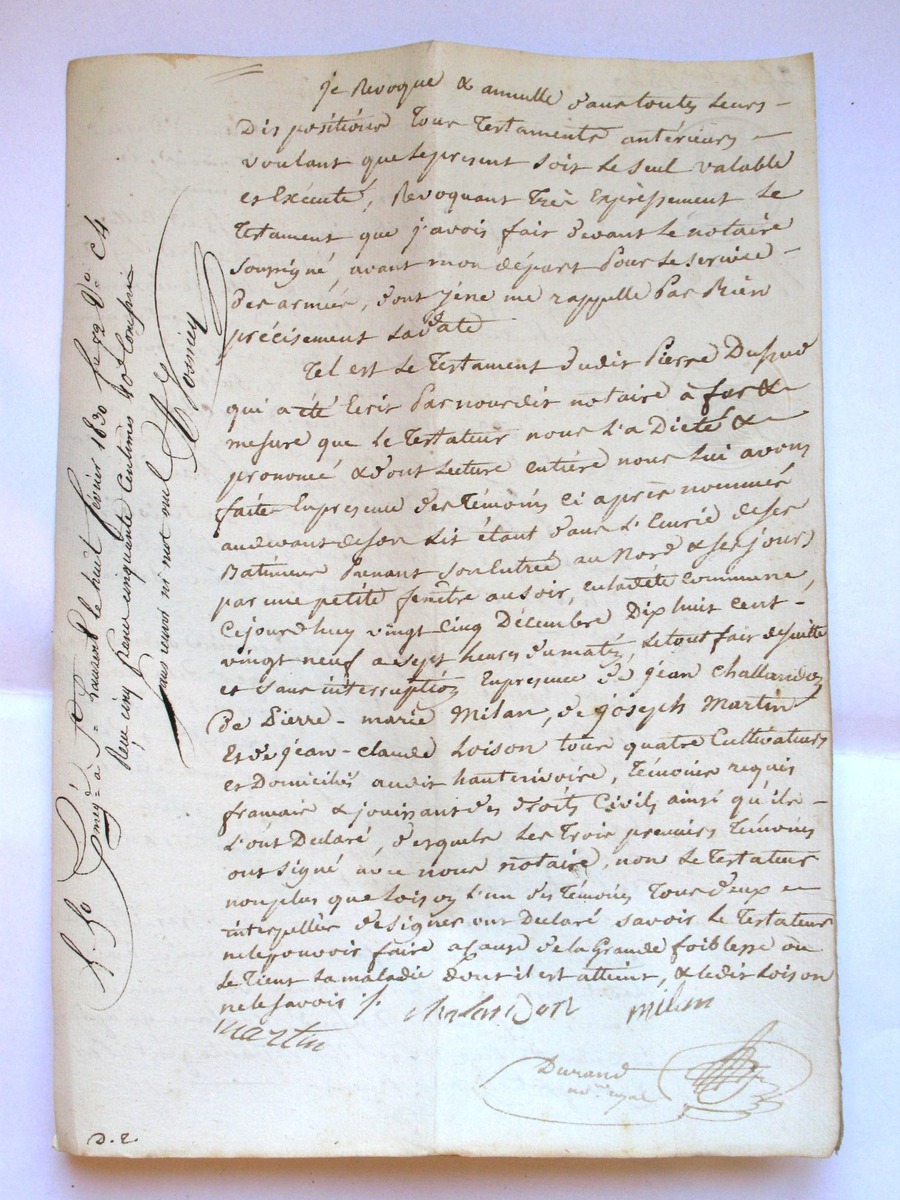 je Revoque & annulle dans toutes Leurs -
Dispositions Tous Testaments antérieurs -
voulant que Le present soit Le seul valable
et Exécuté, Revoquant Très Expressement Le
Testament que j'avois fait devant Le notaire
soussigné avant mon départ pour Le service -
des armées, dont je ne me rappelle pas Bien
précisement La date
Tel est Le Testament dudit Pierre
qui a été Ecrit Par nous dit notaire à fur &
mesure que Le Testateur nous L'a Dicté &
prononcé & dont Lecture entière nous Lui avons
faite En presence des Témoins ci après nommés
au devant de son Lit étant dans L'Ecurie de ses
Batimens Prenant son Entrée au Nord & ses jours
par une petite fenêtre au soir, en ladite Commune,
Cejourdhuy vingt cinq Décembre Dix huit cent -
vingt neuf a sept heures du matin, Le tout fait de suitte
et sans interruption En presence de jean Challandon
De Pierre - marie Milan, de joseph Martin
Et de jean-claude Loison tous quatre Cultivateurs
et Domiciliés audit hauterivoire, Témoins requis
francais & jouissant des droits Civils ainsi qu'ils -
L'ont Declaré, desquels Les Trois premiers Témoins
ont signé avec nous notaire, non Le Testateur
non plus que Loison L'un des Témoins Tous deux
interpellés de signer ont Declaré savoir Le Testateur
ne le pouvoir faire a cause de la Grande foiblesse ou
Le Tient La maladie dont il est atteint, & ledit Loison
ne le savoir
martin chalandon milan
Durand
no.re royal
D. 2.
à St Laurent le huit février 1830 fo 82 Vo C 4
Reçu cinq francs cinquante Centimes 10e Compris
sans renvoi ni mot nul